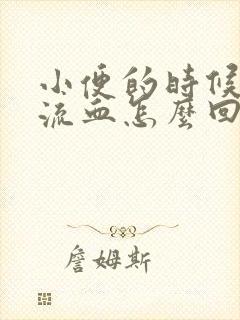 小便的時候
流血怎麼回
詹姆斯